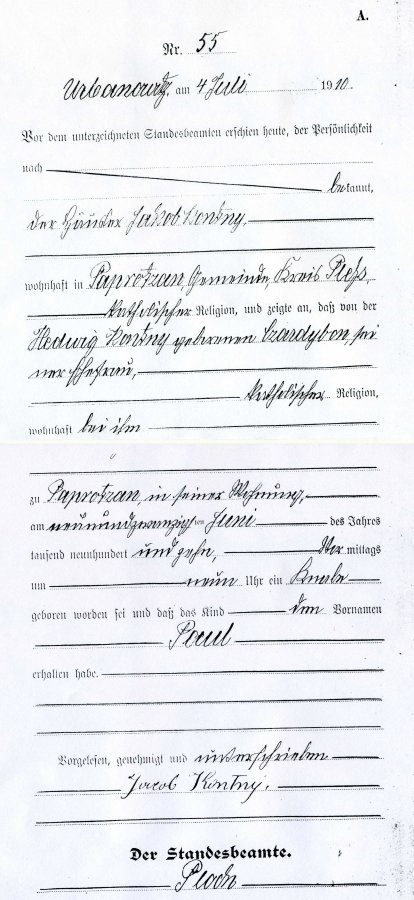 A.
Nr. 55
Urbanowitz, am 4 Juli 1910.
Vor dem unterzeichneten Standesbeamten erschien heute, der Persönlichkeit
nach
bekannt,
der Häusler Jakob Kontny,
wohnhaft in Paprotzan, Gemeinde Kreis Pleß,
katholischer Religion, und zeigte an, daß von der
Hedwig Kontny geborenen Czardybon, sei
ner Ehefrau,
katholischer Religion,
wohnhaft bei ihm
zu Paprotzan, in seiner Wohnung,
am neunundzwanzigsten Juni des Jahres
tausend neunhundert und zehn, Vor mittags
um neun Uhr ein Knabe
geboren worden sei und daß das Kind den Vornamen
Paul
erhalten habe.
Vorgelesen, genehmigt und unterschrieben
Jacob Kontny.
Der Standesbeamte.